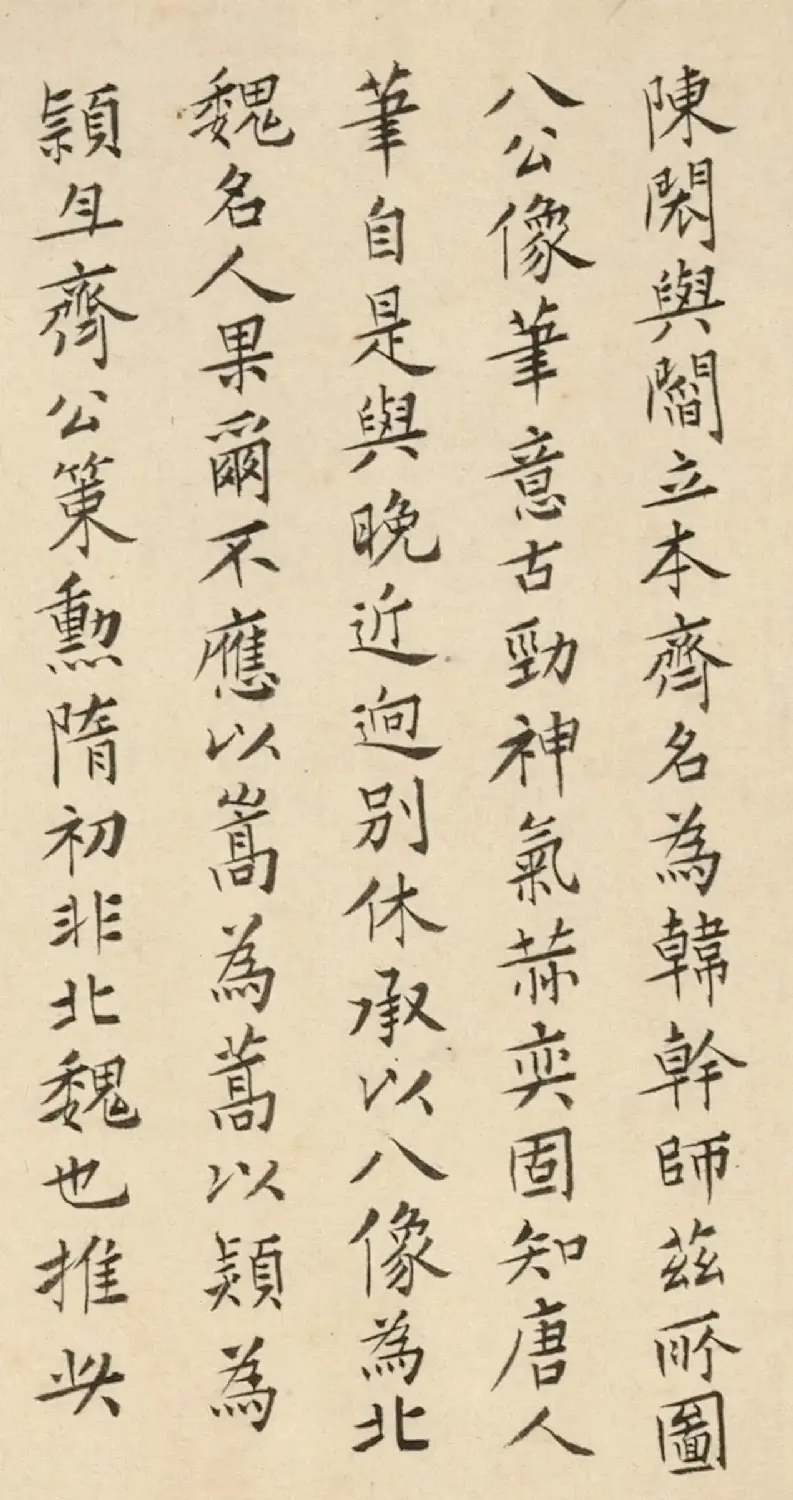 陳閎與閻立本齊名為韓幹師茲所圖
八公像筆意古勁神氣赫奕固知唐人
筆自是與晚近迥別休承以八像為北
魏名人果爾不應以嵩為蒿以熲為
頴且齊公策勳隋初非北魏也推此